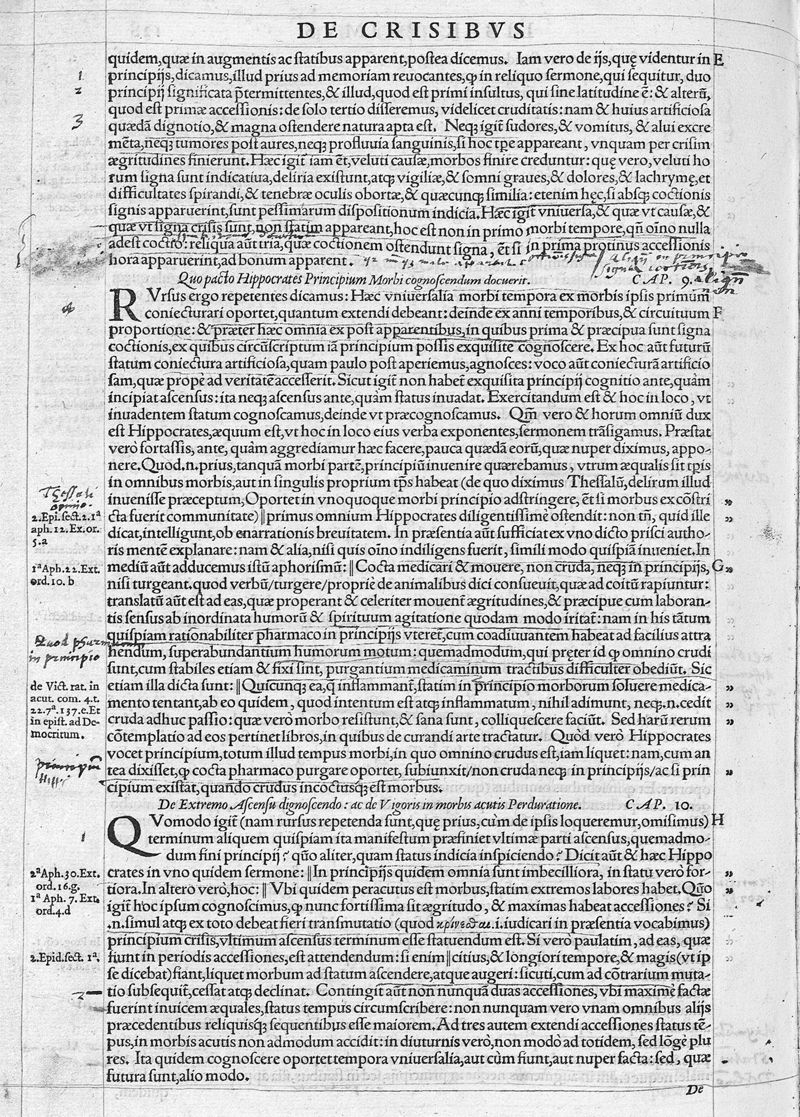 DE CRISIBVS
quidem,quæ in augmentis ac statibus apparent,postea dicemus. Iam vero de ijs,quę videntur in E
principijs,dicamus,illud prius ad memoriam reuocantes,ꝙ in reliquo sermone,qui sequitur, duo
1
principij significata p̄termittentes,& illud,quod est primi insultus, qui sine latitudine ē: & alterū,
2
quod est primæ accessionis: de solo tertio disseremus, videlicet cruditatis: nam & huius artificiosa
3
quædā dignotio,& magna ostendere natura apta est. Neqꝫ igiť sudores,& vomitus, & alui excre
mēta,neqꝫ tumores post aures,neqꝫ profluuia sanguinis,si hoc tpe appareant, vnquam per crisim
ægritudines finierunt. Hæc igiť iam ēt,veluti causæ,morbos finire creduntur: quę vero,veluti ho
rum signa sunt indicatiua,deliria existunt,atqꝫ vigiliæ,& somni graues,& dolores,& lachrymę,et
difficultates spirandi,& tenebræ oculis obortæ,& quæcunqꝫ similia: etenim hęc,si absqꝫ coctionis
signis apparuerint,sunt pessimarum dispositionum indicia. Hæc igiť vniuersa,& quæ vt causæ,&
quæ vt signa crisis sunt,non statim appareant,hoc est non in primo morbi tempore,qñ oīno nulla
adest coctio: reliqua aūt tria,quæ coctionem ostendunt signa, ēt si in prima protinus accessionis
hora apparuerint,ad bonum apparent.
Quo pacto Hippocrates Principium Morbi cognoscendum docuerit. CAP. 9.
RVrsus ergo repetentes dicamus: Hæc vniuersalia morbi tempora ex morbis ipsis primum
coniecturari oportet,quantum extendi debeant: deinde ex anni temporibus,& circuituum F
proportione: & præter hæc omnia ex post apparentibus,in quibus prima & præcipua sunt signa
coctionis,ex quibus circūscriptum iā principium possis exquisite cognoscere. Ex hoc aūt futurū
statum coniectura artificiosa,quam paulo post aperiemus,agnosces: voco aūt coniecturā artificio
sam,quæ prope ad veritatē accesserit. Sicut igiť non habeť exquisita principij cognitio ante,quàm
incipiat ascensus: ita neqꝫ ascensus ante,quàm status inuadat. Exercitandum est & hoc in loco, vt
inuadentem statum cognoscamus,deinde vt præcognoscamus. Qm̄ vero & horum omniū dux
est Hippocrates,æquum est,vt hoc in loco eius verba exponentes,sermonem trāsigamus. Præstat
vero fortassis, ante, quàm aggrediamur hæc facere,pauca quædā eorū,quæ nuper diximus, appo-
nere. Quod.n.prius,tanquā morbi partē,principiū inuenire quærebamus, vtrum æqualis sit tp̄is
in omnibus morbis,aut in singulis proprium tp̄s habeat (de quo diximus Thessalū,delirum illud
inuenisse præceptum,Oportet in vnoquoque morbi principio adstringere, ēt si morbus ex cōstri „
2.Epi.sect.2.1ª
cta fuerit communitate)‖primus omnium Hippocrates diligentissimè ostendit: non tñ, quid ille „
aph.12.Ex.or.
dicat,intelligunt,ob enarrationis breuitatem. In præsentia aūt sufficiat ex vno dicto prisci autho-
5.a
ris mentē explanare: nam & alia,nisi quis oīno indiligens fuerit, simili modo quispiā inueniet. In
mediū aūt adducemus istū aphorismū:‖Cocta medicari & mouere, non cruda, neqꝫ in principijs, G„
1ªAph.22.Ext.
nisi turgeant.quod verbū/turgere/propriè de animalibus dici consueuit,quæ ad coitū rapiuntur:
ord.10.b
translatū aūt est ad eas,quæ properant & celeriter mouenť ægritudines,& præcipue cum laboran-
tis sensus ab inordinata humorū & spirituum agitatione quodam modo irritať: nam in his tātum
quispiam rationabiliter pharmaco in principijs vtereť,cum coadiuuantem habeat ad facilius attra
hendum, superabundantium humorum motum: quemadmodum,qui pręter id ꝙ omnino crudi
sunt,cum stabiles etiam & fixi sint, purgantium medicaminum tractibus difficulter obediūt. Sic
etiam illa dicta sunt:‖Quicunqꝫ ea,q̄ inflammanť,statim in principio morborum soluere medica- „
de Vict. rat. in
mento tentant,ab eo quidem, quod intentum est atqꝫ inflammatum, nihil adimunt, neqꝫ.n.cedit „
acut. com. 4.t.
22.7ª.137.e.Et
cruda adhuc passio: quæ vero morbo resistunt,& sana sunt, colliquescere faciūt. Sed harū rerum „
in epist. ad De-
cōtemplatio ad eos pertinet libros,in quibus de curandi arte tractatur. Quòd verò Hippocrates
mocritum.
vocet principium,totum illud tempus morbi,in quo omnino crudus est,iam liquet: nam,cum an
tea dixisset,ꝙ cocta pharmaco purgare oportet, subiunxit/non cruda neqꝫ in principijs/ac si prin „
cipium existat,quando crudus incoctusqꝫ est morbus.
De Extremo Ascensu dignoscendo: ac de Vigoris in morbis acutis Perduratione. CAP. 10.
QVomodo igiť (nam rursus repetenda sunt,quę prius,cùm de ipsis loqueremur,omisimus) H
1
terminum aliquem quispiam ita manifestum præfiniet vltimæ parti ascensus,quemadmo-
dum fini principij? quō aliter,quam status indicia inspiciendo? Dicit aūt & hæc Hippo
2ªAph.30.Ext.
crates in vno quidem sermone:‖In principijs quidem omnia sunt imbecilliora, in statu verò for- „
ord.16.g.
tiora.In altero verò,hoc:‖Vbi quidem peracutus est morbus,statim extremos labores habet.Quō „
1ª Aph. 7. Ext.
igiť hoc ipsum cognoscimus,ꝙ nunc fortissima sit ægritudo, & maximas habeat accessiones? Si
ord.4.d
.n.simul atqꝫ ex toto debeat fieri transmutatio (quod κρίνεσθαι.i.iudicari in præsentia vocabimus)
principium crisis,vltimum ascensus terminum esse statuendum est. Si verò paulatim, ad eas, quæ
2.Epid.sect. 1ª.
fiunt in periodis accessiones,est attendendum: si enim‖citius,& longiori tempore,& magis(vt ip „
se dicebat)fiant,liquet morbum ad statum ascendere,atque augeri: sicuti,cum ad cōtrarium muta-
tio subsequiť,cessat atqꝫ declinat. Contingit aūt non nunquā duas accessiones, vbi maximè factæ
2
fuerint inuicem æquales,status tempus circumscribere: non nunquam vero vnam omnibus alijs
præcedentibus reliquisqꝫ sequentibus esse maiorem. Ad tres autem extendi accessiones status tē-
pus,in morbis acutis non admodum accidit: in diuturnis verò,non modò ad totidem, sed lōgè plu
res. Ita quidem cognoscere oportet tempora vniuersalia,aut cùm fiunt,aut nuper facta: sed, quæ
futura sunt,alio modo.
De